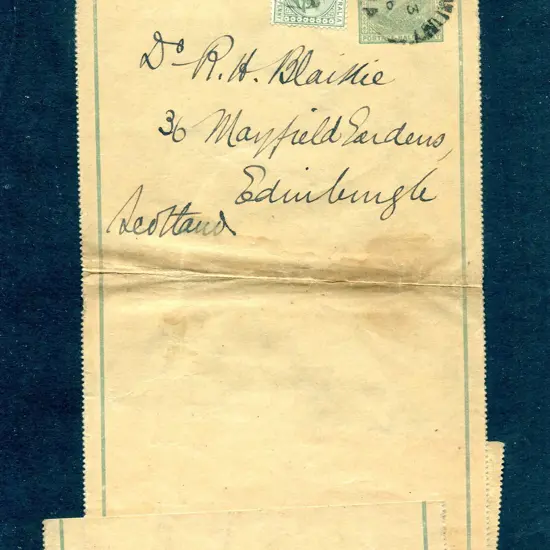 Dr R. H. Blaikie
36 Mayfield Gardens,
Edinburgh
Scotland